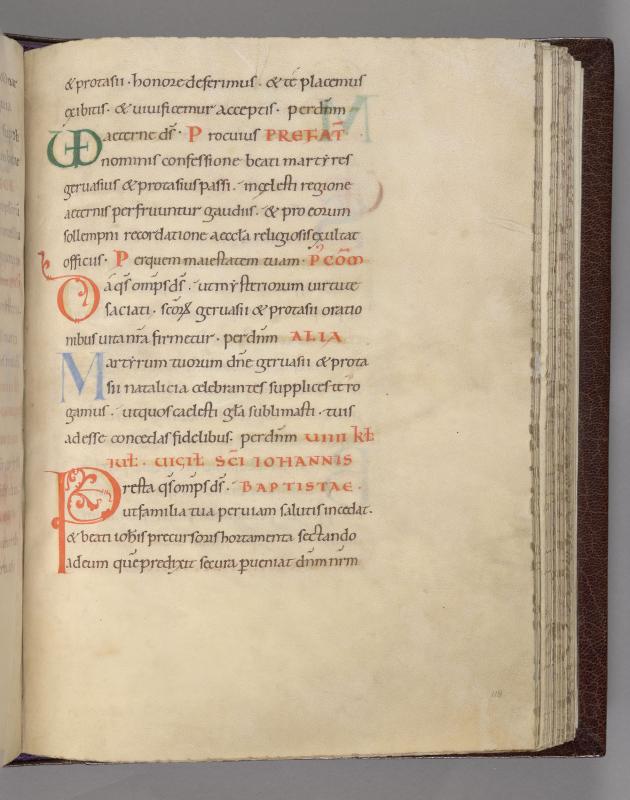 & protasii · honore deferimus · & tē placemus
exibitis · & uiuificemur acceptis · perdn̄m
VD aeterne dS̄ · P rocuius PREFAT̄ ·
nominis confessione beati martyres
geruasius & protasius passi · incelesti regione
aeternis perfruuntur gaudiis · & pro eorum
sollempni recordatione aeccła religiosis exultat
officiis · P erquem maiestatem tuam · P̄ CŌM
Da q̄s omps ds̄ · ut mysteriorum uirtute
saciati · scōꝝ geruasii & protasii oratio
nibus uita nr̄a firmetur · perdn̄m ALIA
Martyrum tuorum dn̄e geruasii & prota
sii natalicia celebrantes supplices te ro
gamus · ut quos caelesti gła sublimasti · tuis
adesse concedas fidelibus · perdn̄m VIIII kł
IUŁ · UIGIŁ SCĪ IOHANNIS
Presta q̄s omps ds̄ · BAPTISTAE ·
ut familia tua per uiam salutis incedat ·
& beati ioħis precursoris hortamenta sectando
adeum quē predixit secura ꝑueniat dn̄m nr̄m
118